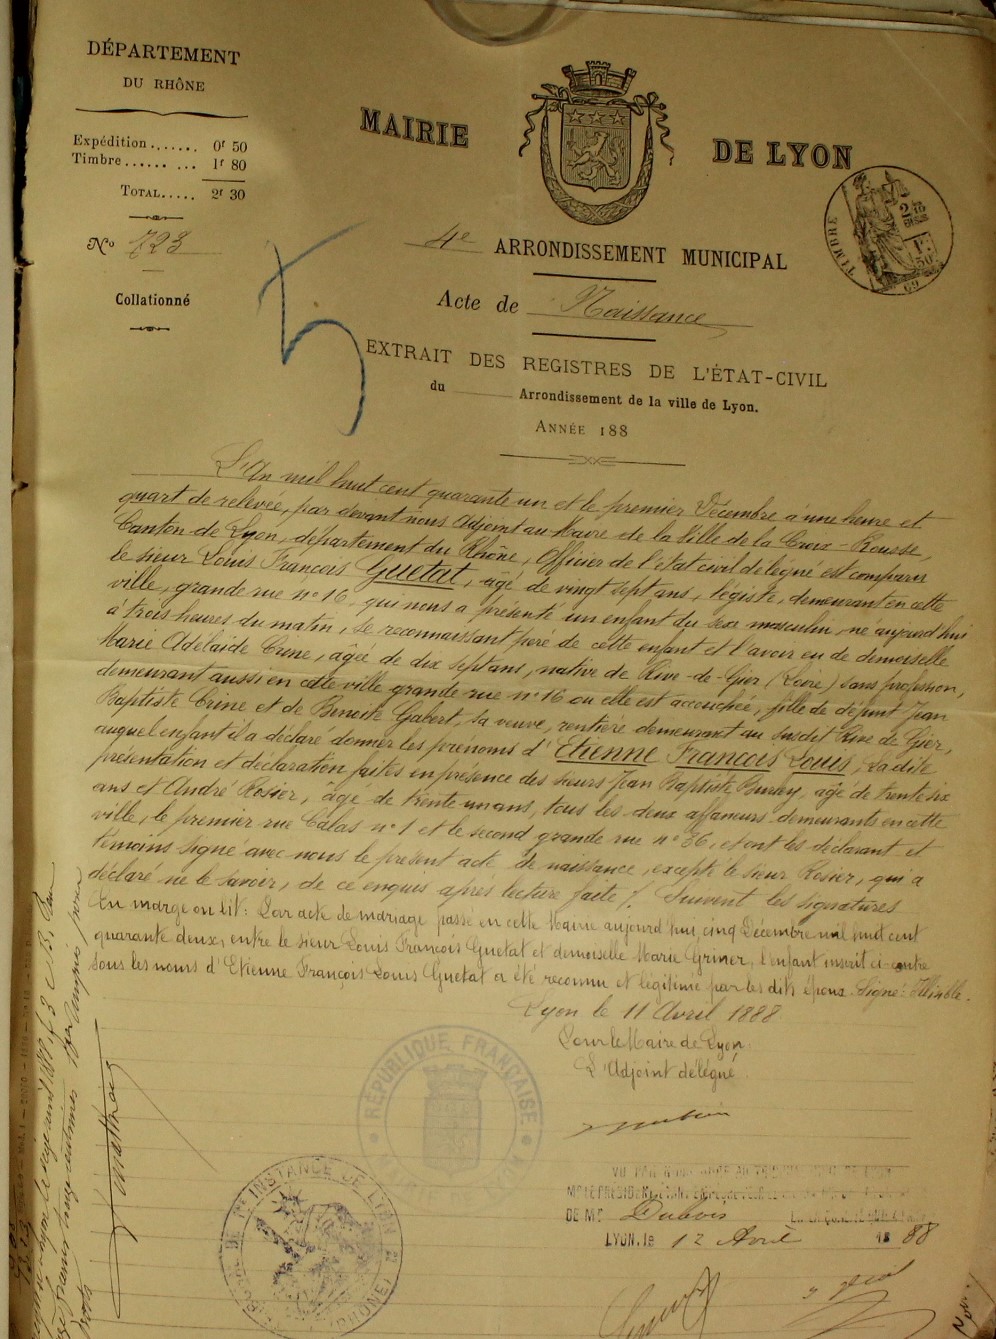 DÉPARTEMENT
DU RHÔNE
Expédition ....... 0f 50
Timbre ...... ... 1f 80
TOTAL..... 2f 30
No 723
Collationné
MAIRIE DE LYON
TIMBRE
69
4e ARRONDISSEMENT MUNICIPAL
Acte de Naissance
EXTRAIT DES REGISTRES DE L'ÉTAT-CIVIL
du Arrondissement de la ville de Lyon.
ANNÉE 188
L'An mil huit cent quarante un et le premier Décembre à une heure et
quart de relevée, par devant nous Adjoint au Maire de la Ville de la Croix-Rousse,
Canton de Lyon, département du Rhône, Officier de l'état civil délégué est comparu
le sieur Louis François Guetat, âgé de vingt sept ans, légiste, demeurant en cette
ville, grande rue n° 16, qui nous a présenté un enfant du sexe masculin, né aujourd'hui
à trois heures du matin, se reconnaissant père de cette enfant et l'avoir eu de demoiselle
Marie Adélaïde Crine, âgée de dix sept ans, native de Rive-de-Gier (Loire) sans profession,
demeurant aussi en cette ville grande rue n° 16 ou elle est accouchée, fille de défunt Jean
Baptiste Crine et de Benoite Gabert, sa veuve, rentière demeurant au susdit Rive de Gier,
auquel enfant il a déclaré donner les prénoms d'Etienne François Louis, La dite
présentation et déclaration faites en présence des sieurs Jean Baptiste Burley, âgé de trente six
ans et André Rosier, âgé de trente un ans, tous les deux affaneurs demeurants en cette
ville, le premier rue Calas n° 1 et le second grande rue n° 36, et ont les déclarant et
témoins signé avec nous le présent acte de naissance, excepté le sieur Rosier, qui a
déclaré ne le savoir, de ce enquis après lecture faite /. Suivent les signatures
En marge on lit: Par acte de mariage passé en cette Mairie aujourd'hui, cinq Décembre mil huit cent
quarante deux, entre le sieur Louis François Guetat et demoiselle Marie Griner, l'enfant inscrit ci-contre
sous les noms d'Etienne François Louis Guetat a été reconnu et légitimé par les dits époux. Signé: Illisible.
Lyon le 11 Avril 1888
Pour le Maire de Lyon.
L'Adjoint délégué
RÉPUBLIQUE FRANÇAISE
MAIRIE DE LYON
TRIBUNAL DE 1re INSTANCE DE LYON
(RHÔNE)
DE Mr Dubois
LYON, le 12 Avril 1888